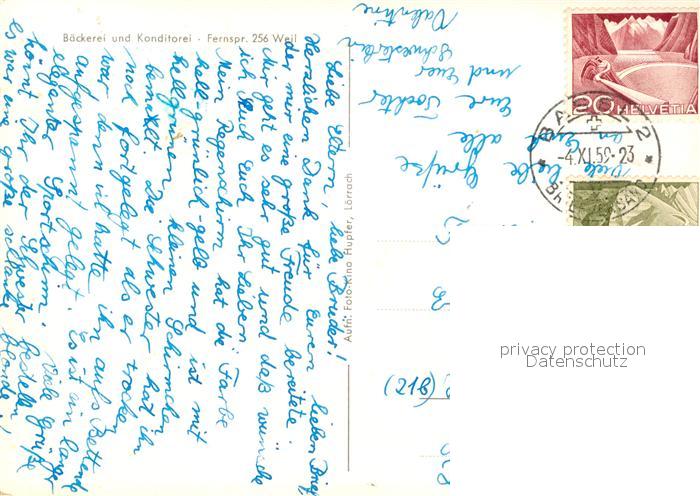 Bäckerei und Konditorei · Fernspr. 256 Weil
Liebe Eltern, liebe Brüder!
Herzlichen Dank für Euren lieben Brief,
der mir eine große Freude bereitete.
Mir geht es sehr gut und das wünsche
ich auch Euch Ihr Lieben
Mein Regenschirm hat die Farbe
hell-grünlich-gelb und ist mit
hellgrünen kleinen Schirmchen
bemalt. Die Schwester hat ihn
noch fortgelegt als er trocken
war denn ich hatte ihn aufs Bettende
aufgespannt gelegt. Es ist ein langer
eleganter Sportschirm. Viele Grüße
könnt Ihr der Schwester bestellen
es war eine große schlanke blonde!
Viele liebe Grüße
an Euch alle
Eure Tochter
und Euer
Schwesterlein
Valentine
Aufn: Foto-Kino Hupfer, Lörrach
20 HELVETIA
BASEL 2
-4.XI.59-23
(21b)
privacy protection
Datenschutz